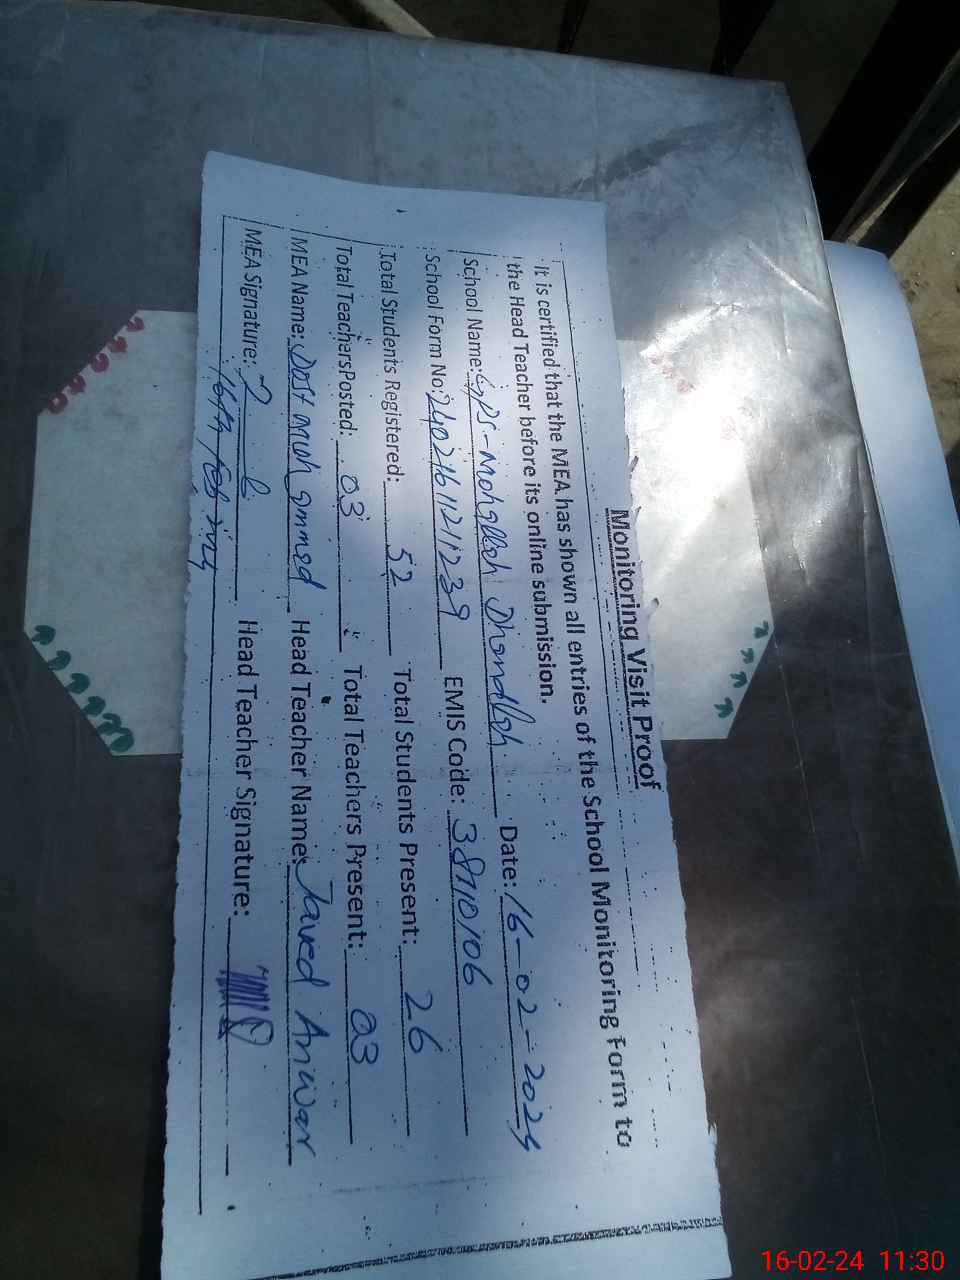 Monitoring Visit Proof
It is certified that the MEA has shown all entries of the School Monitoring Form to
the Head Teacher before its online submission.
School Name: GPS-Mohallah Dhandlah Date: 16-02-2024
School Form No: 24021611211239 EMIS Code: 38710106
Total Students Registered: 52 Total Students Present: 26
Total Teachers Posted: 03 Total Teachers Present: 03
MEA Name: Dost muhammed Head Teacher Name: Javed Anwar
MEA Signature: Head Teacher Signature:
16th Feb
16-02-24 11:30